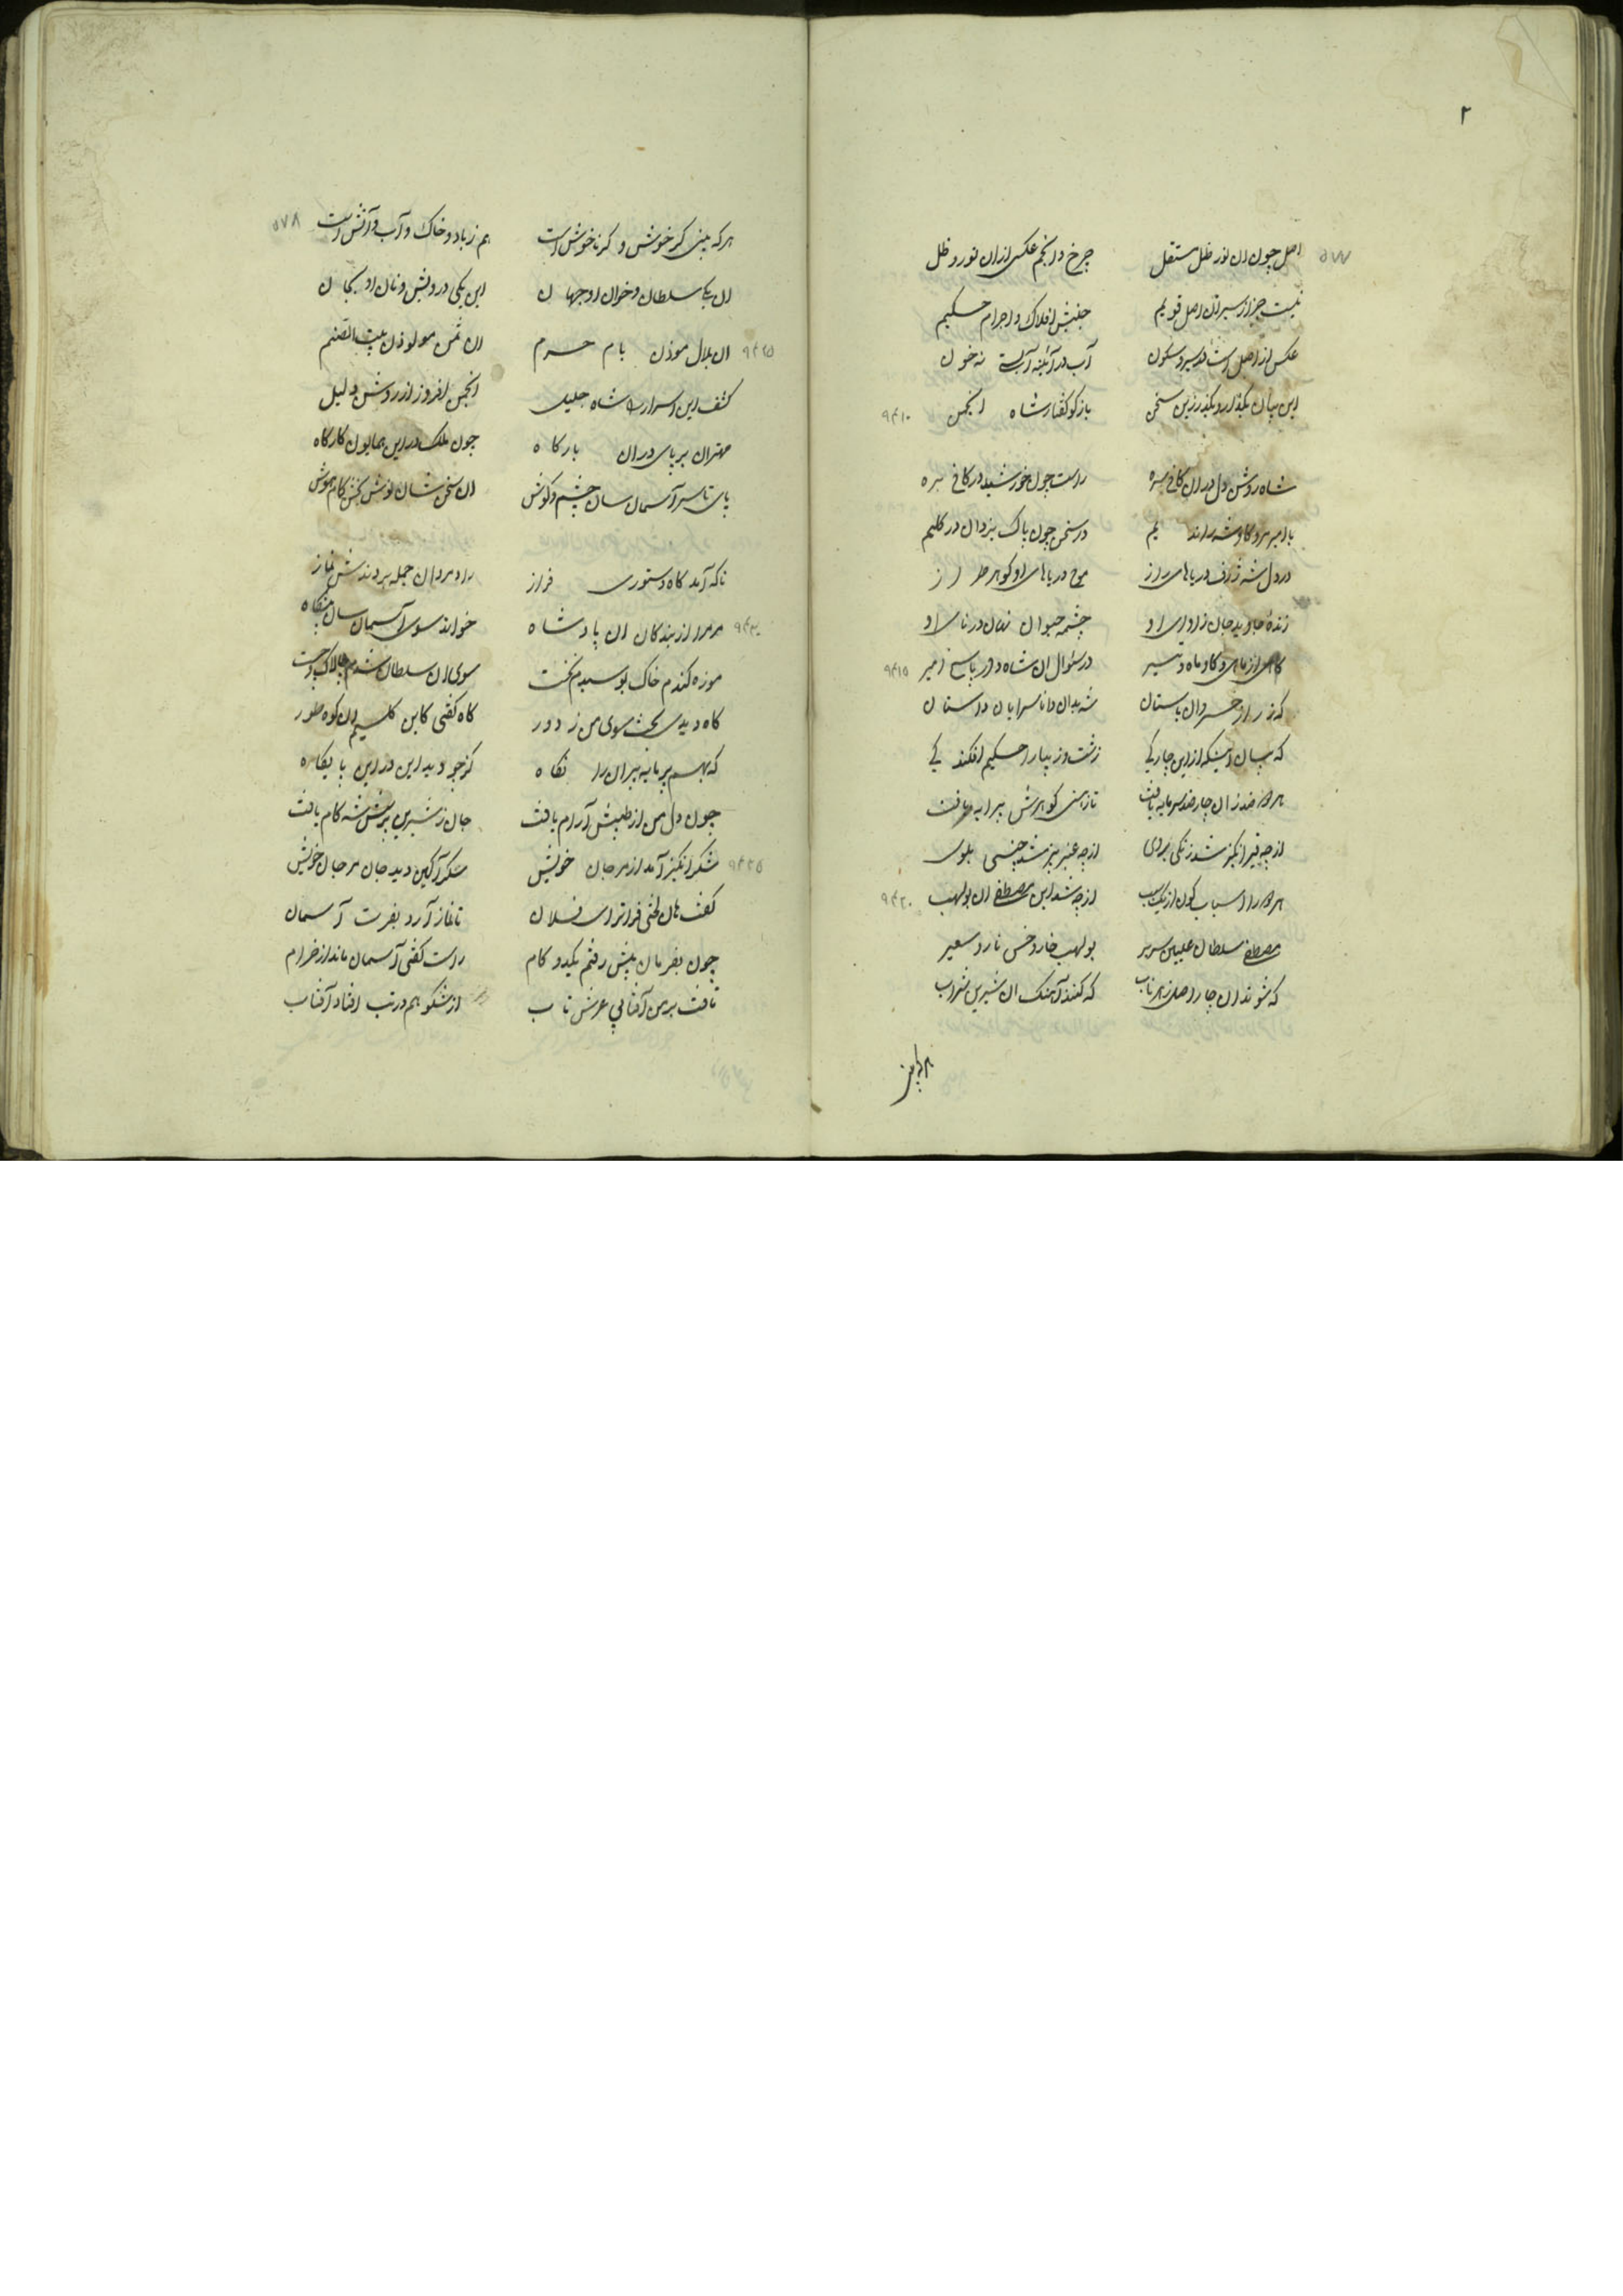 ۲
۵۷۷
اصل چون ان نور ظل مستقل چرخ و انجم عکسی از ان نور و ظل
نیست جز از سیر ان اصل قویم جنبش افلاک و اجرام حکیم
عکس از اصل است در سیر و سکون آب در آئینه آبست نه خون
این بیان بگذار و بگذر زین سخن بازگو گفتار شاه انجمن ۹۴۱۰
شاه روشن دل در ان کاخ سره راست چون خورشید در کاخ بره
با امیر مرد کاوشه را ندیم در سخن چون پاک یزدان در کلیم
در دل شه ژرف دریاهای راز موج دریاهای او کوهر طراز
زندهٔ جاوید جان زاوای او چشمه حیوان نهان در نای او
گاهی از ماهی و کاو ماه و تیر در سئوال ان شاه و در پاسخ امیر ۹۴۱۵
که ز راز خسروان باستان شه بدان دانا سرایان داستان
که بیان اینکه از این چار کی زشت و زیبا را حکیم افکند پی
هر دو ضد زان چار ضد سرمایه یافت تا ز اسنی کوهرش پیرایه یافت
از چه قیرانگیز شد زنگی بروی از چه عنبر بیز شد چینی بموی
هر دو را اسباب کون از یک سبب از چه شد این مصطفی ان بولهب ۹۴۲۰
مصطفی سلطان علیین سریر بولهب خار و خس نار و سعیر
که شوند ان چار اصل زهر ناب که کنند آهنک ان شیرین شراب
۵۷۸
هر که بینی کر خوش و کر ناخوش است هم ز باد و خاک و آب و آتش است
ان یکی سلطان و خوان او جهان این یکی درویش و نان او بجان
۹۴۲۵ ان بلال موذن بام حرم ان مولوذن بیت الصنم
کشف این اسرار را شاه جلیل انجمن افروز از روشن دلیل
مهتران بر پای در ان بارکاه چون ملک در این همایون کارکاه
پای تا سر آسمان سان چشم و کوش ان سخن شان نوش بخش کام هوش
ناکه آمد کاه دستوری فراز راد مردان جمله بردندش نماز
۹۴۳۰ مر مرا از بندکان ان پادشاه خواند سوی آسمان سان پیشگاه
موزه کندم خاک بوسیدم نخست سوی ان سلطان شدم چالاک و چست
کاه دیدی بخت سوی من ز دور کاه کفتی کاین کلیم ان کوه طور
که بهر پر مایه پیران را نکاه کز چو دید این در این پایکاه
چون دل من از طپش آرام یافت جان ز شیرین پرسش شه کام یافت
۹۴۳۵ شکر انکیز آمد از مرجان خویش شکر آکین دید جان مرجان خویش
کفت هان لختی فراتر ای فلان تا نماز آرد بفرت آسمان
چون بفرمان پیش رفتم یکدو کام راست کفتی آسمان ماند از خرام
تافت بر من آفتابی عرش تاب از شکوهم در تب افتاد آفتاب